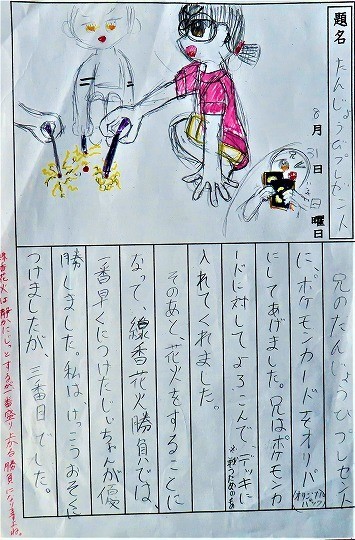 題名
たんじょうびプレゼント
8月31日 日曜日
兄のたんじょうびプレゼント
に、ポケモンカードをオリパ
(オリジナルパック)
にしてあげました。兄はポケモンカ
ードに対してよろこんで、デッキに
※戦うためのカード
入れてくれました。
そのあと、花火をすることに
なって、線香花火勝負では、
一番早くにつけたじいちゃんが優
勝しました。私はけっこうおそくに
つけましたが、三番目でした。
線香花火は静かにじっとするが一番盛り上がる勝負になりますよね。